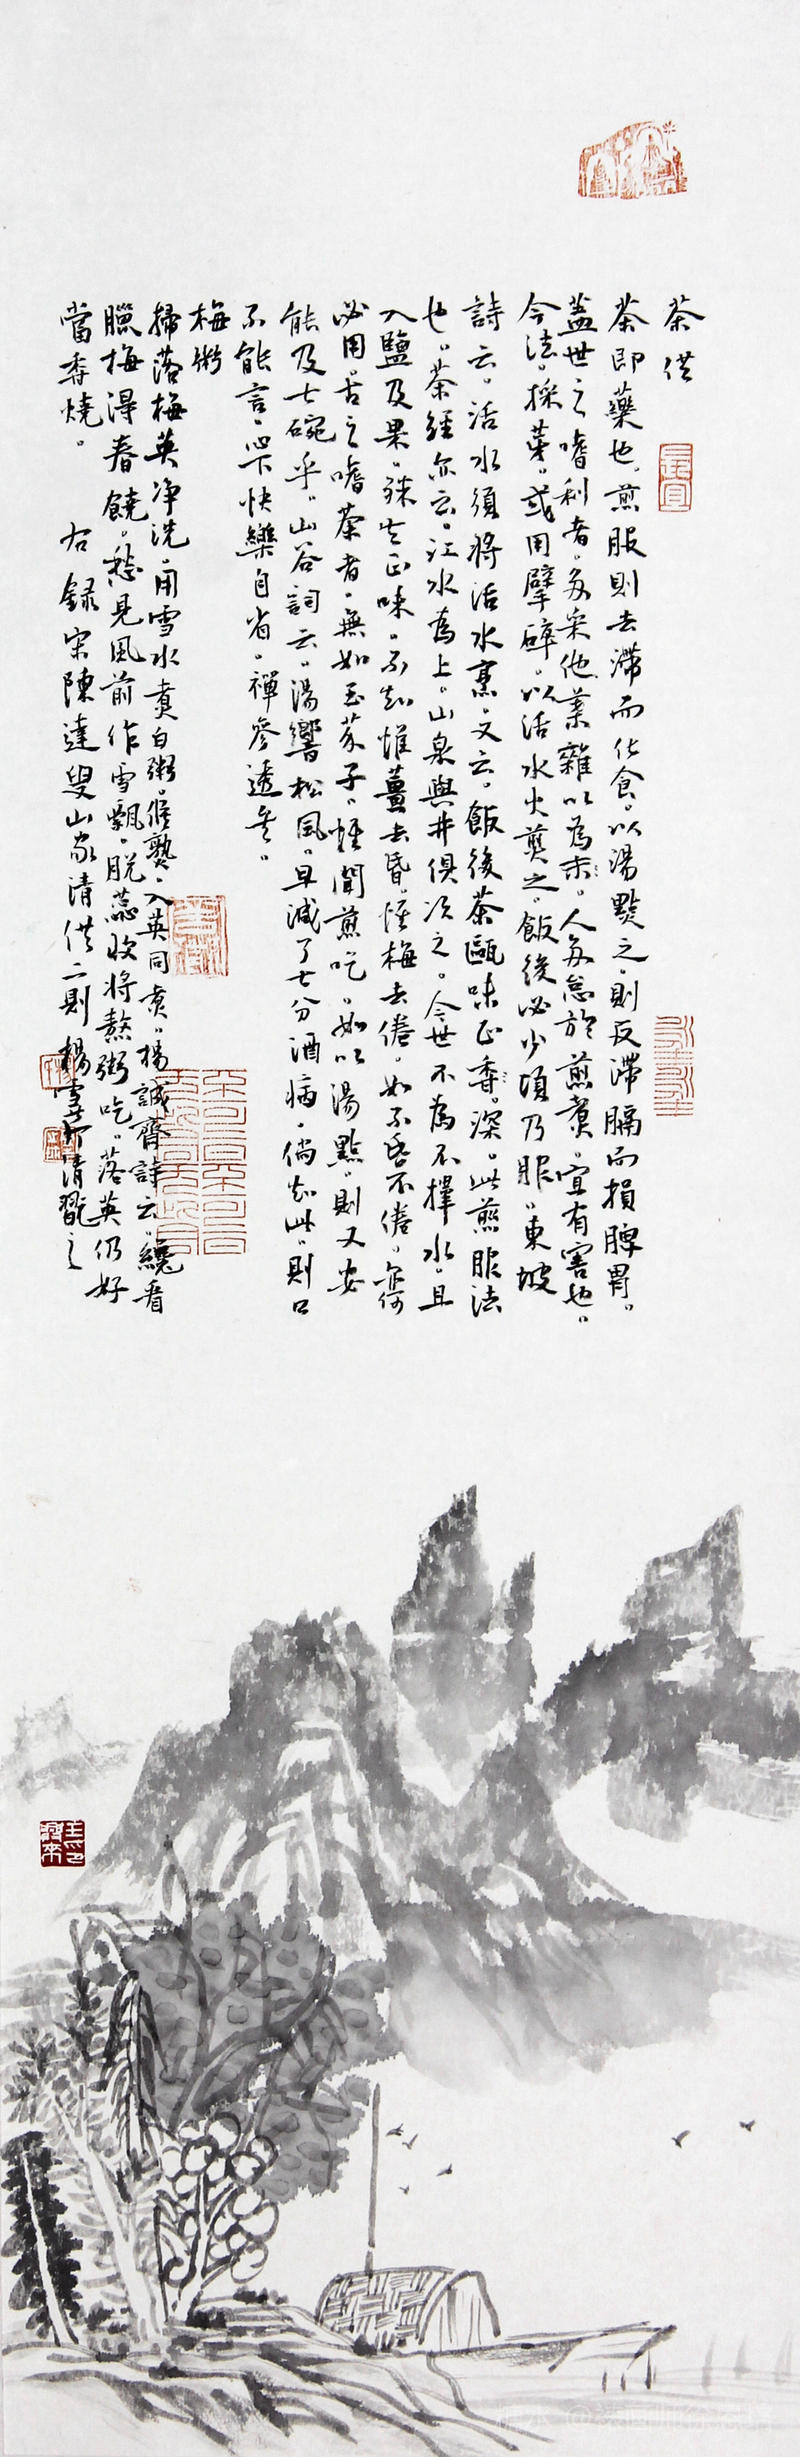 茶供
茶即藥也。煎服則去滯而化食。以湯點之。則反滯膈而損脾胃。
蓋世之嗜利者。多采他葉雜以為末。人多怠於煎煮。宜有害也。
今法。採芽。或用擘碎。以活水火煎之。飯後必少頃乃服。東坡
詩云。活水須將活火烹。又云。飯後茶甌味正香深。此煎服法
也。茶經亦云。江水為上。山泉與井俱次之。今世不為不擇水。且
入鹽及果。殊失正味。不知惟薑去昏。惟梅去倦。如不昏不倦。亦何
必用。古之嗜茶者。無如玉茶子。惟聞煎吃。如以湯點。則又安
能及七碗乎。山谷詞云。湯響松風。早減了七分酒病。倘知此。則口
不能言。心下快樂自省。禪參透矣。
梅粥
掃落梅英净洗。用雪水煮白粥。候熟。入英同煮。楊誠齋詩云。纔看
臘梅得春饒。愁見風前作雪飄。脫蕊收將熬粥吃。落英仍好
當香燒。
右錄宋陳達叟山家清供二則